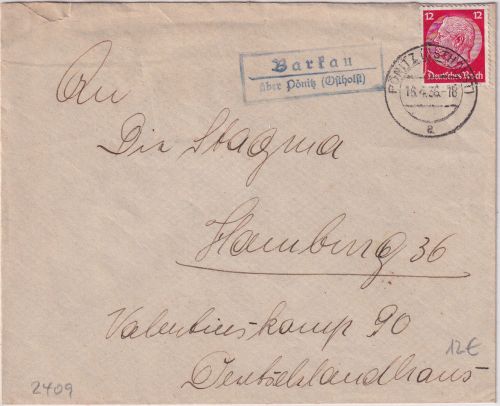 12 12
Deutsches Reich
Barkau
über Pönitz (Ostholst)
16.4.36.-18
a
An
Die Stagma
Hamburg 36
Valentinskamp 90
Deutschlandhaus
12€
2409